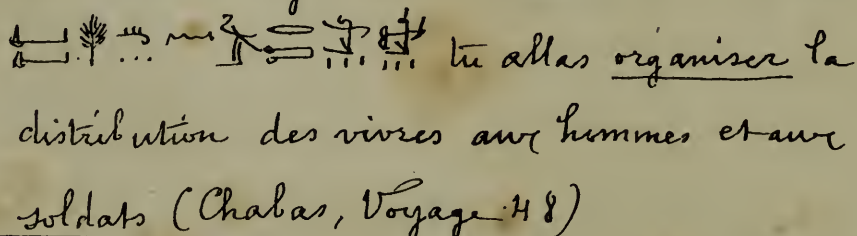 tu allas organiser la
distribution des vivres aux hommes et aux
soldats (Chabas, Voyage 48)